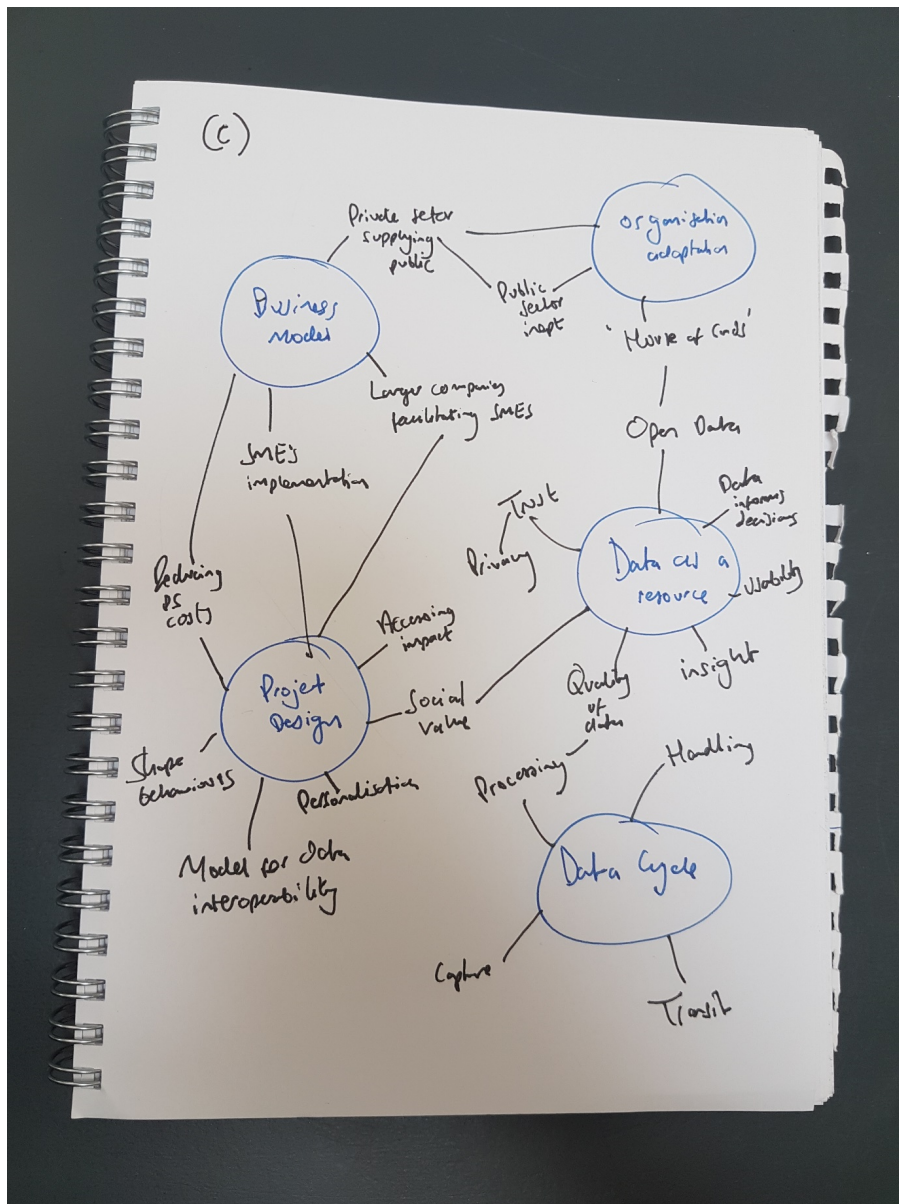 (C)
Private setor
supplying
public
organisation
adaptation
Public
sector
inept
Business
Model
'House of Cards'
Larger companies
facilitating SMEs
SME's
implementation
Open Data
Data
informs
decisions
Trust
Privacy
Data as a
resource
Usability
Reducing
PS
costs
Accessing
impact
insight
Quality
of
data
Projet
Design
Social
value
Shape
behaviours
Personalisation
Processing
Handling
Model for data
interoperability
Data Cycle
Capture
Transit